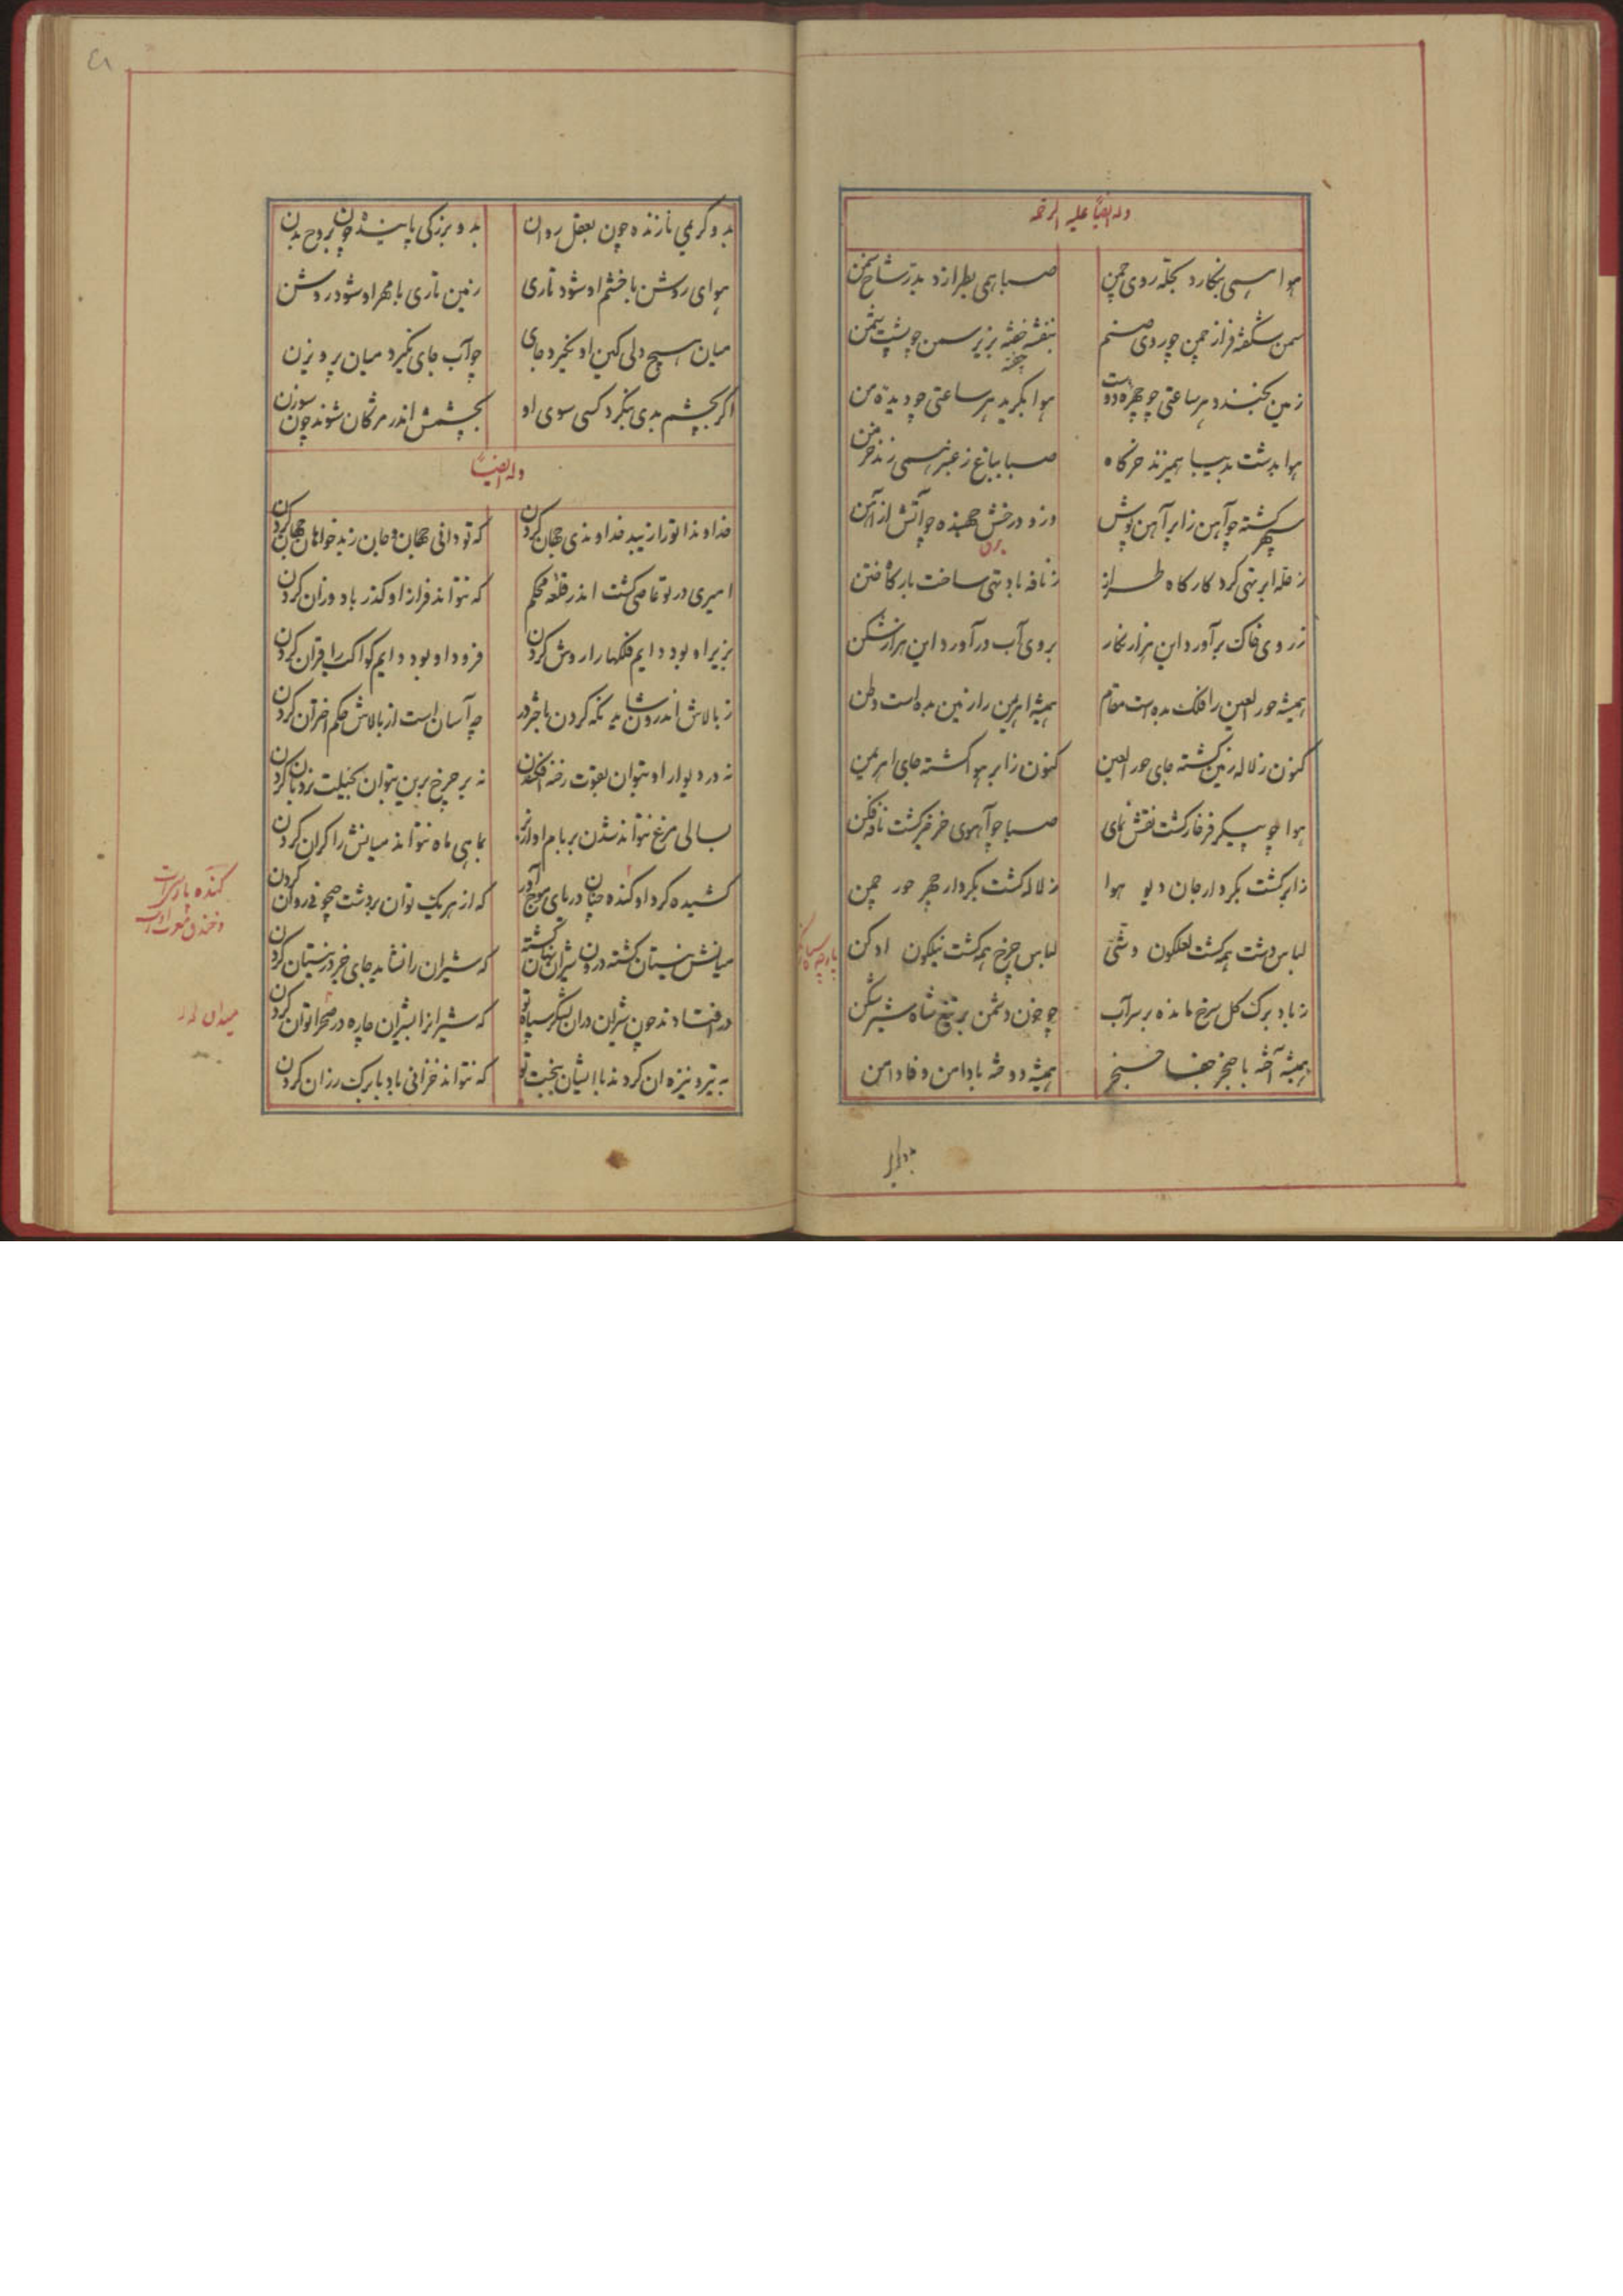 وله ایضا علیه الرحمه
هوا همی بنگارد بحله روی چمن
صبا همی بطرازد بدر شاخ سمن
سمن شکفته فراز چمن چو روی صنم
بنفشه خفته بزیر سمن چو پشت شمن
زمین بخندد هر ساعتی چو چهره دوست
هوا بگرید هر ساعتی چو دیده من
هوا بدشت بدیبا همیزند خرگاه
صبا بباغ ز عنبر همی زند خرمن
سپهر گشته چو آهن ز ابر آهن پوش
وزو درخش جهنده چو آتش از آهن
ز حله ابر تهی کرد کارگاه طراز
ز نافه باد تهی ساخت بارگاه ختن
ز روی خاک برآورد این هزار نگار
بروی آب درآورد این هزار شکن
همیشه حور العین را فلک بده است مقام
همیشه اهرمن را زمین بده است وطن
کنون ز لاله زمین گشته جای حور العین
کنون ز ابر هوا گشته جای اهرمن
هوا چو پیکر فرخار گشت نقش نمای
صبا چو آهوی خرخیز گشت نافه فکن
ز ابر گشت بکردار جان دیو هوا
ز لاله گشت بکردار چهر حور چمن
لباس دشت همه گشت لعلگون وشی
لباس چرخ همه گشت نیلگون ادکن
ز باد برک کل سرخ مانده بر سر آب
چو خون دشمن بر تیغ شاه شیر شکن
همیشه آخته با خنجر جفا خنجر
همیشه دوخته با دامن وفا دامن
بدو گرمی نازنده چون بعقل روان
بدو بزرگی پاینده چون بروح بدن
هوای روشن با خشم او شود تاری
زمین تاری با مهر او شود روشن
میان هیچ دلی کین او نگیرد جای
چو آب جای نگیرد میان پرویزن
اگر بچشم بدی بنگرد کسی سوی او
بچشمش اندر مژگان شوند چون سوزن
وله ایضا
خداوندا تو را زیبد خداوندی جهان کردن
که تو دانی جهان و جان ز بدخواهان جهان کردن
امیری در تو عاصی گشت اندر قلعه محکم
که نتواند فراز او گذر باد وزان کردن
بزیر او بود دایم فلکها را روش کردن
فرود او بود دایم کواکب را قران کردن
ز بالاش اندرون شاید نگه کردن باختر در
چه آسان است از بالاش حکم اختران کردن
نه در دیوار او بتوان بقوت رخنه افکندن
نه بر چرخ برین بتوان بحیلت نردبان کردن
بسالی مرغ نتواند شدن بر بام او از بر
بماهی ماه نتواند میانش را کران کردن
کشیده گرد او کنده چنان دریای موج آور
که از هر یک توان بر دشت جیحونی روان کردن
میانش نیستان گشته درون شیران نهان گشته
که شیران را نشاید جای جز در نیستان کردن
در افتادند چون شیران در آن لشکر سپاه تو
که شیر انرا بشیران چاره در صحرا توان کردن
به تیر و نیزه ان کردند با ایشان ببخت تو
که نتواند خزانی باد با برک رزان کردن